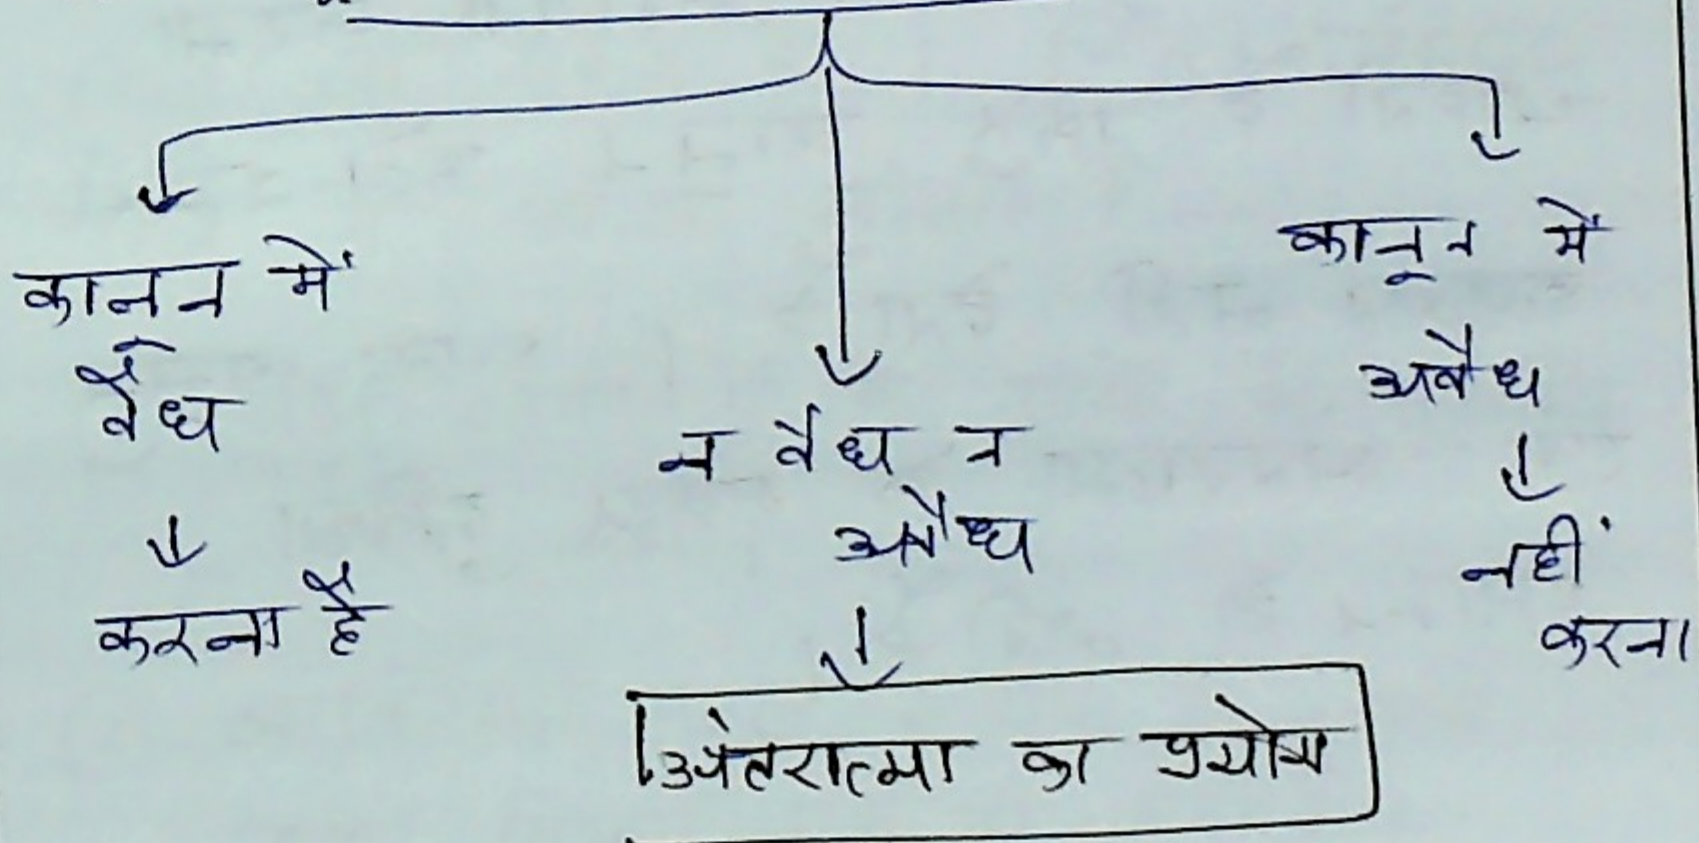 कानून में
वैध
करना है
न वैध न
अवैध
अंतरात्मा का प्रयोग
कानून में
अवैध
नहीं
करना